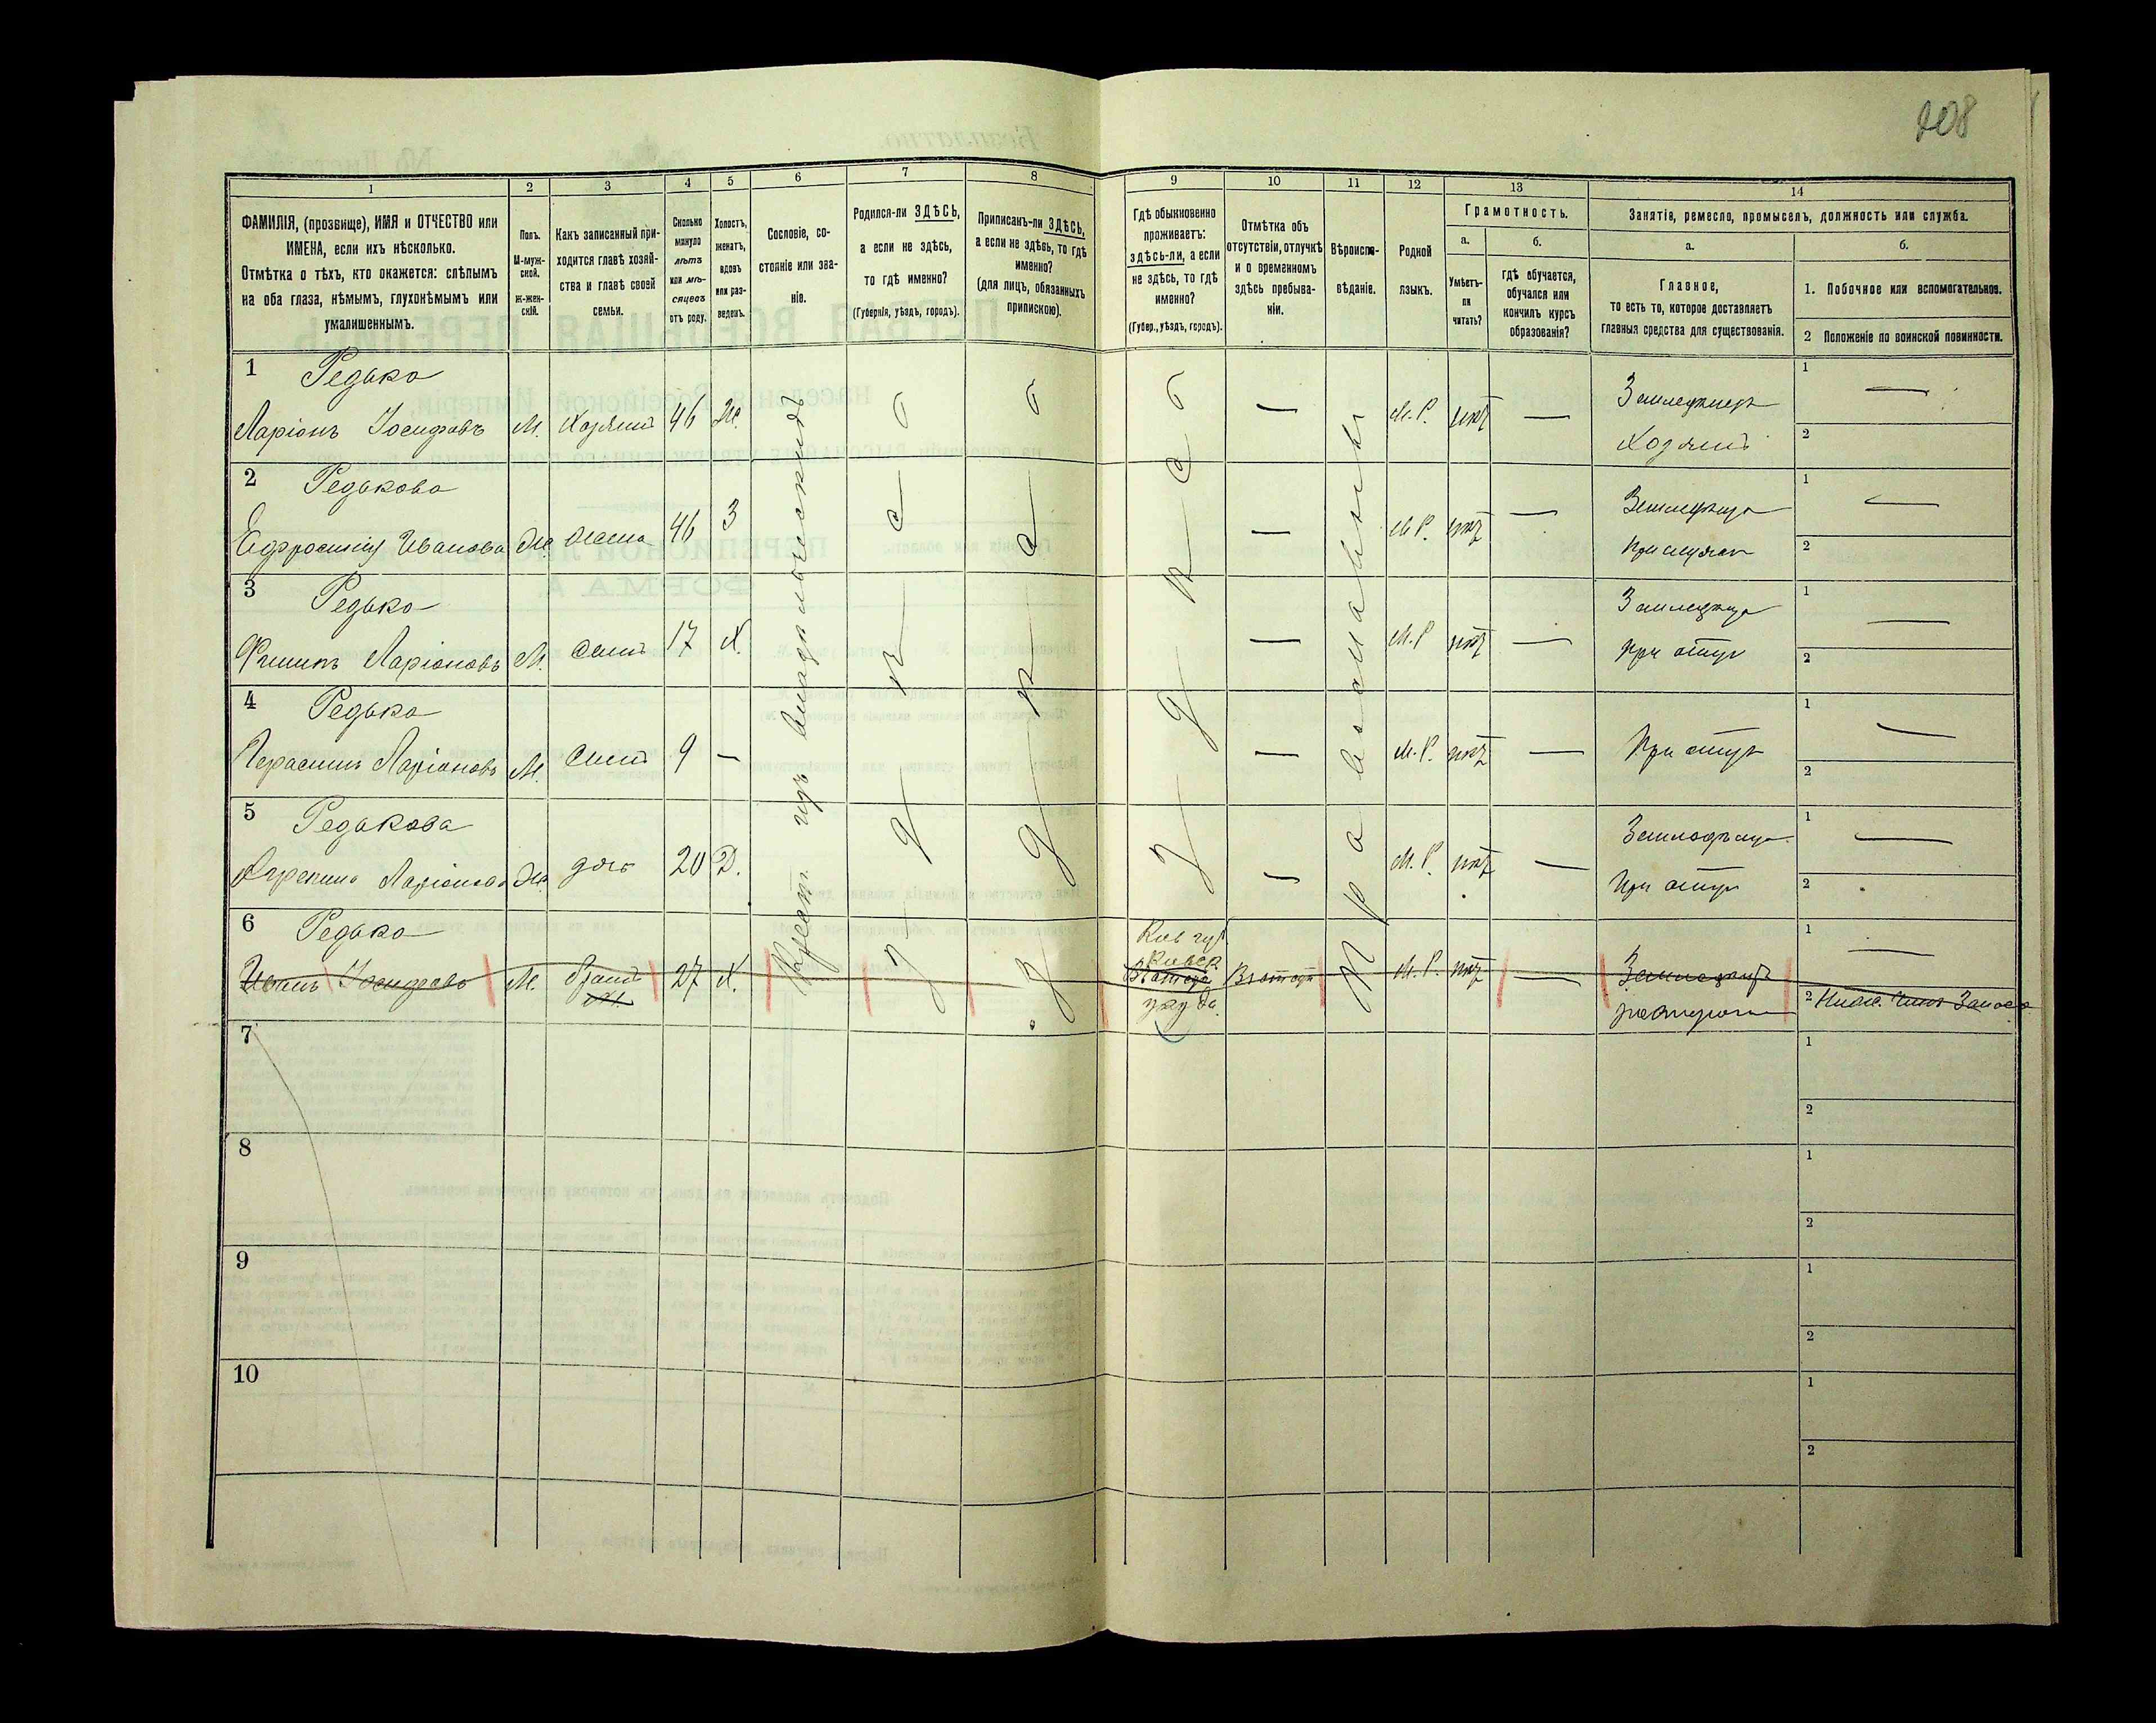 208
1
2
3
4
5
6
7
8
9
10
11
12
13
14
ФАМИЛІЯ, (прозвище), ИМЯ и ОТЧЕСТВО или
ИМЕНА, если ихъ нѣсколько.
Отмѣтка о тѣхъ, кто окажется: слѣпымъ
на оба глаза, нѣмымъ, глухонѣмымъ или
умалишеннымъ.
Полъ.
М-муж-
ской.
Ж-жен-
скій.
Какъ записанный при-
ходится главѣ хозяй-
ства и главѣ своей
семьи.
Сколько
минуло
лѣтъ
или мѣ-
сяцевъ
отъ роду.
Холостъ,
женатъ,
вдовъ
или раз-
веденъ.
Сословіе, со-
стояніе или зва-
ніе.
Родился-ли ЗДѢСЬ,
а если не здѣсь,
то гдѣ именно?
(Губернія, уѣздъ, городъ).
Приписанъ-ли ЗДѢСЬ,
а если не здѣсь, то гдѣ
именно?
(для лицъ, обязанныхъ
припискою).
Гдѣ обыкновенно
проживаетъ:
здѣсь-ли, а если
не здѣсь, то гдѣ
именно?
(Губер., уѣздъ, городъ).
Отмѣтка объ
отсутствіи, отлучкѣ
и о временномъ
здѣсь пребыва-
ніи.
Вѣроиспо-
вѣданіе.
Родной
языкъ.
Грамотность.
а.
б.
Умѣетъ-
ли
читать?
гдѣ обучается,
обучался или
кончилъ курсъ
образованія?
Занятіе, ремесло, промыселъ, должность или служба.
а.
б.
Главное,
то есть то, которое доставляетъ
главныя средства для существованія.
1. Побочное или вспомогательное.
2 Положеніе по воинской повинности.
1 Редько
Ларіонъ Іосифовъ М. Хозяинъ 46 Ж. М. Р. нѣтъ — Земледѣлецъ
Хозяинъ
1 —
2
2 Редькова
Ефросинія Иванова Ж. жена 46 З — М. Р. нѣтъ — Земледѣлица
при мужѣ
1 —
2
3 Редько
Филипъ Ларіоновъ М. сынъ 17 Х. — М. Р нѣтъ —
при отцѣ
1 —
2
4 Редько
Герасимъ Ларіоновъ М. сынъ 9 — — М. Р. нѣтъ — При отцѣ
1 —
2
5 Редькова
Агрепина Ларіонова Ж. дочь 20 Д. — М. Р. нѣтъ —
При отцѣ
1 —
2
6 Редько
Иванъ Іосифовъ М. братъ 27 Х. М. Р. нѣтъ —
Кіев губ.
Кіевск.
уѣзда
Крест. изъ владѣльческихъ
здѣсь
здѣсь
здѣсь
Православный
1 —
2 Нижн. чинъ Запаса
7
1
2
8
1
2
9
1
2
10
1
2